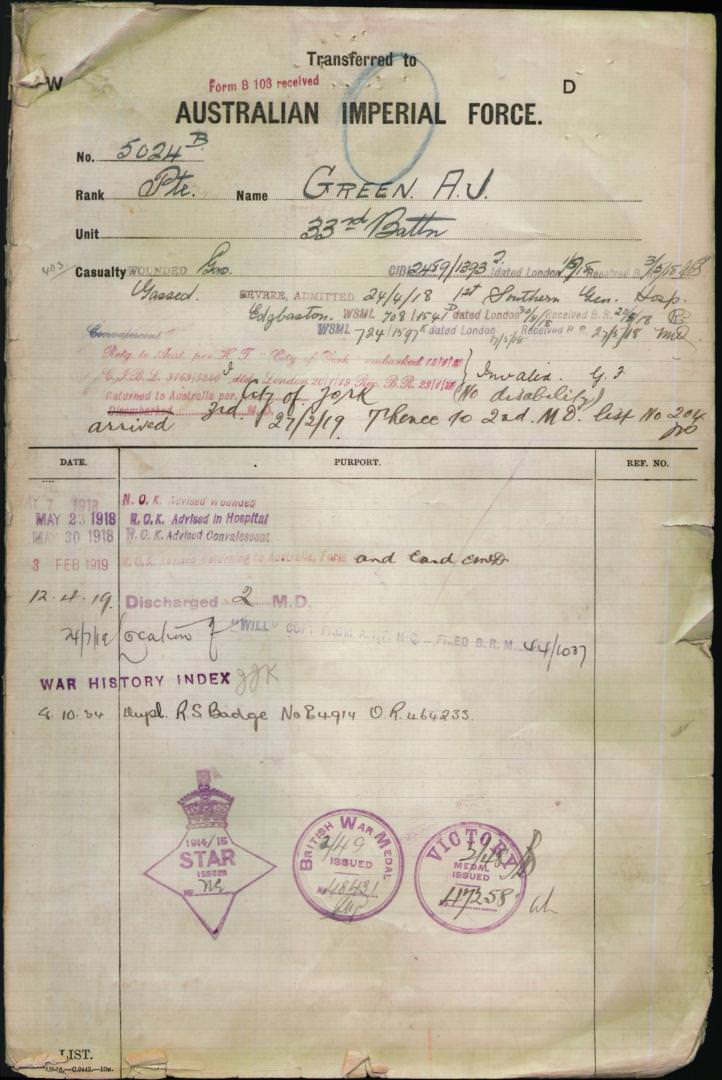 Transferred to
W
Form B 103 received
D
AUSTRALIAN IMPERIAL FORCE.
No. 5024 B
Rank Pte. Name GREEN. A.J.
Unit 33rd Battn
403
Casualty WOUNDED CIBL 2459/1393 dated London Received B.R.
Gassed. SEVERE, ADMITTED 24/4/18 1st Southern Gen. Hosp.
Edgbaston. WSML 708/1541 D dated London Received B.R.
WSML 724/1597 K dated London Received B.R. 27/5/18
Convalescent
Retg. to Aust. per H.T. City of York embarked
C.I.B.L. dtd. London 20/1/19 Rep. B.R. Invalid. G.S
Returned to Australia per. City of York (No disability)
Disembarked 3rd M.D.
arrived 27/2/19 Thence to 2nd. M.D. list No 204
DATE. PURPORT. REF. NO.
1918 N.O.K. Advised Wounded
MAY 23 1918 N.O.K. Advised in Hospital
MAY 30 1918 N.O.K. Advised Convalescent
3 FEB 1919 N.O.K. Advised Returning to Australia, Form and Card
12.4.19. Discharged 2 M.D.
24/7/19 Location of "WILL" COPY FROM FILED B.R.M. 44/1037
WAR HISTORY INDEX
9.10.34 Dupl. R.S Badge No E4914 O.R. 464233
1914/15
STAR
ISSUED
No.
BRITISH WAR MEDAL
2/49
ISSUED
No 48431
VICTORY
3/48
MEDAL
ISSUED
47258
LIST.